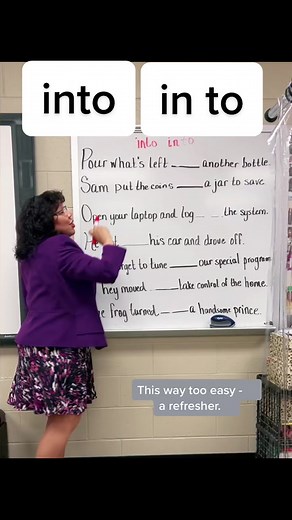 into
in to
into in to
Pour what's left ____ another bottle.
Sam put the coins ____ a jar to save
Open your laptop and log _ _ the system.
his car and drove off.
get to tune ____ our special program
hey moved ____ take control of the home.
e frog turned ____ a handsome prince.
This way too easy -
a refresher.